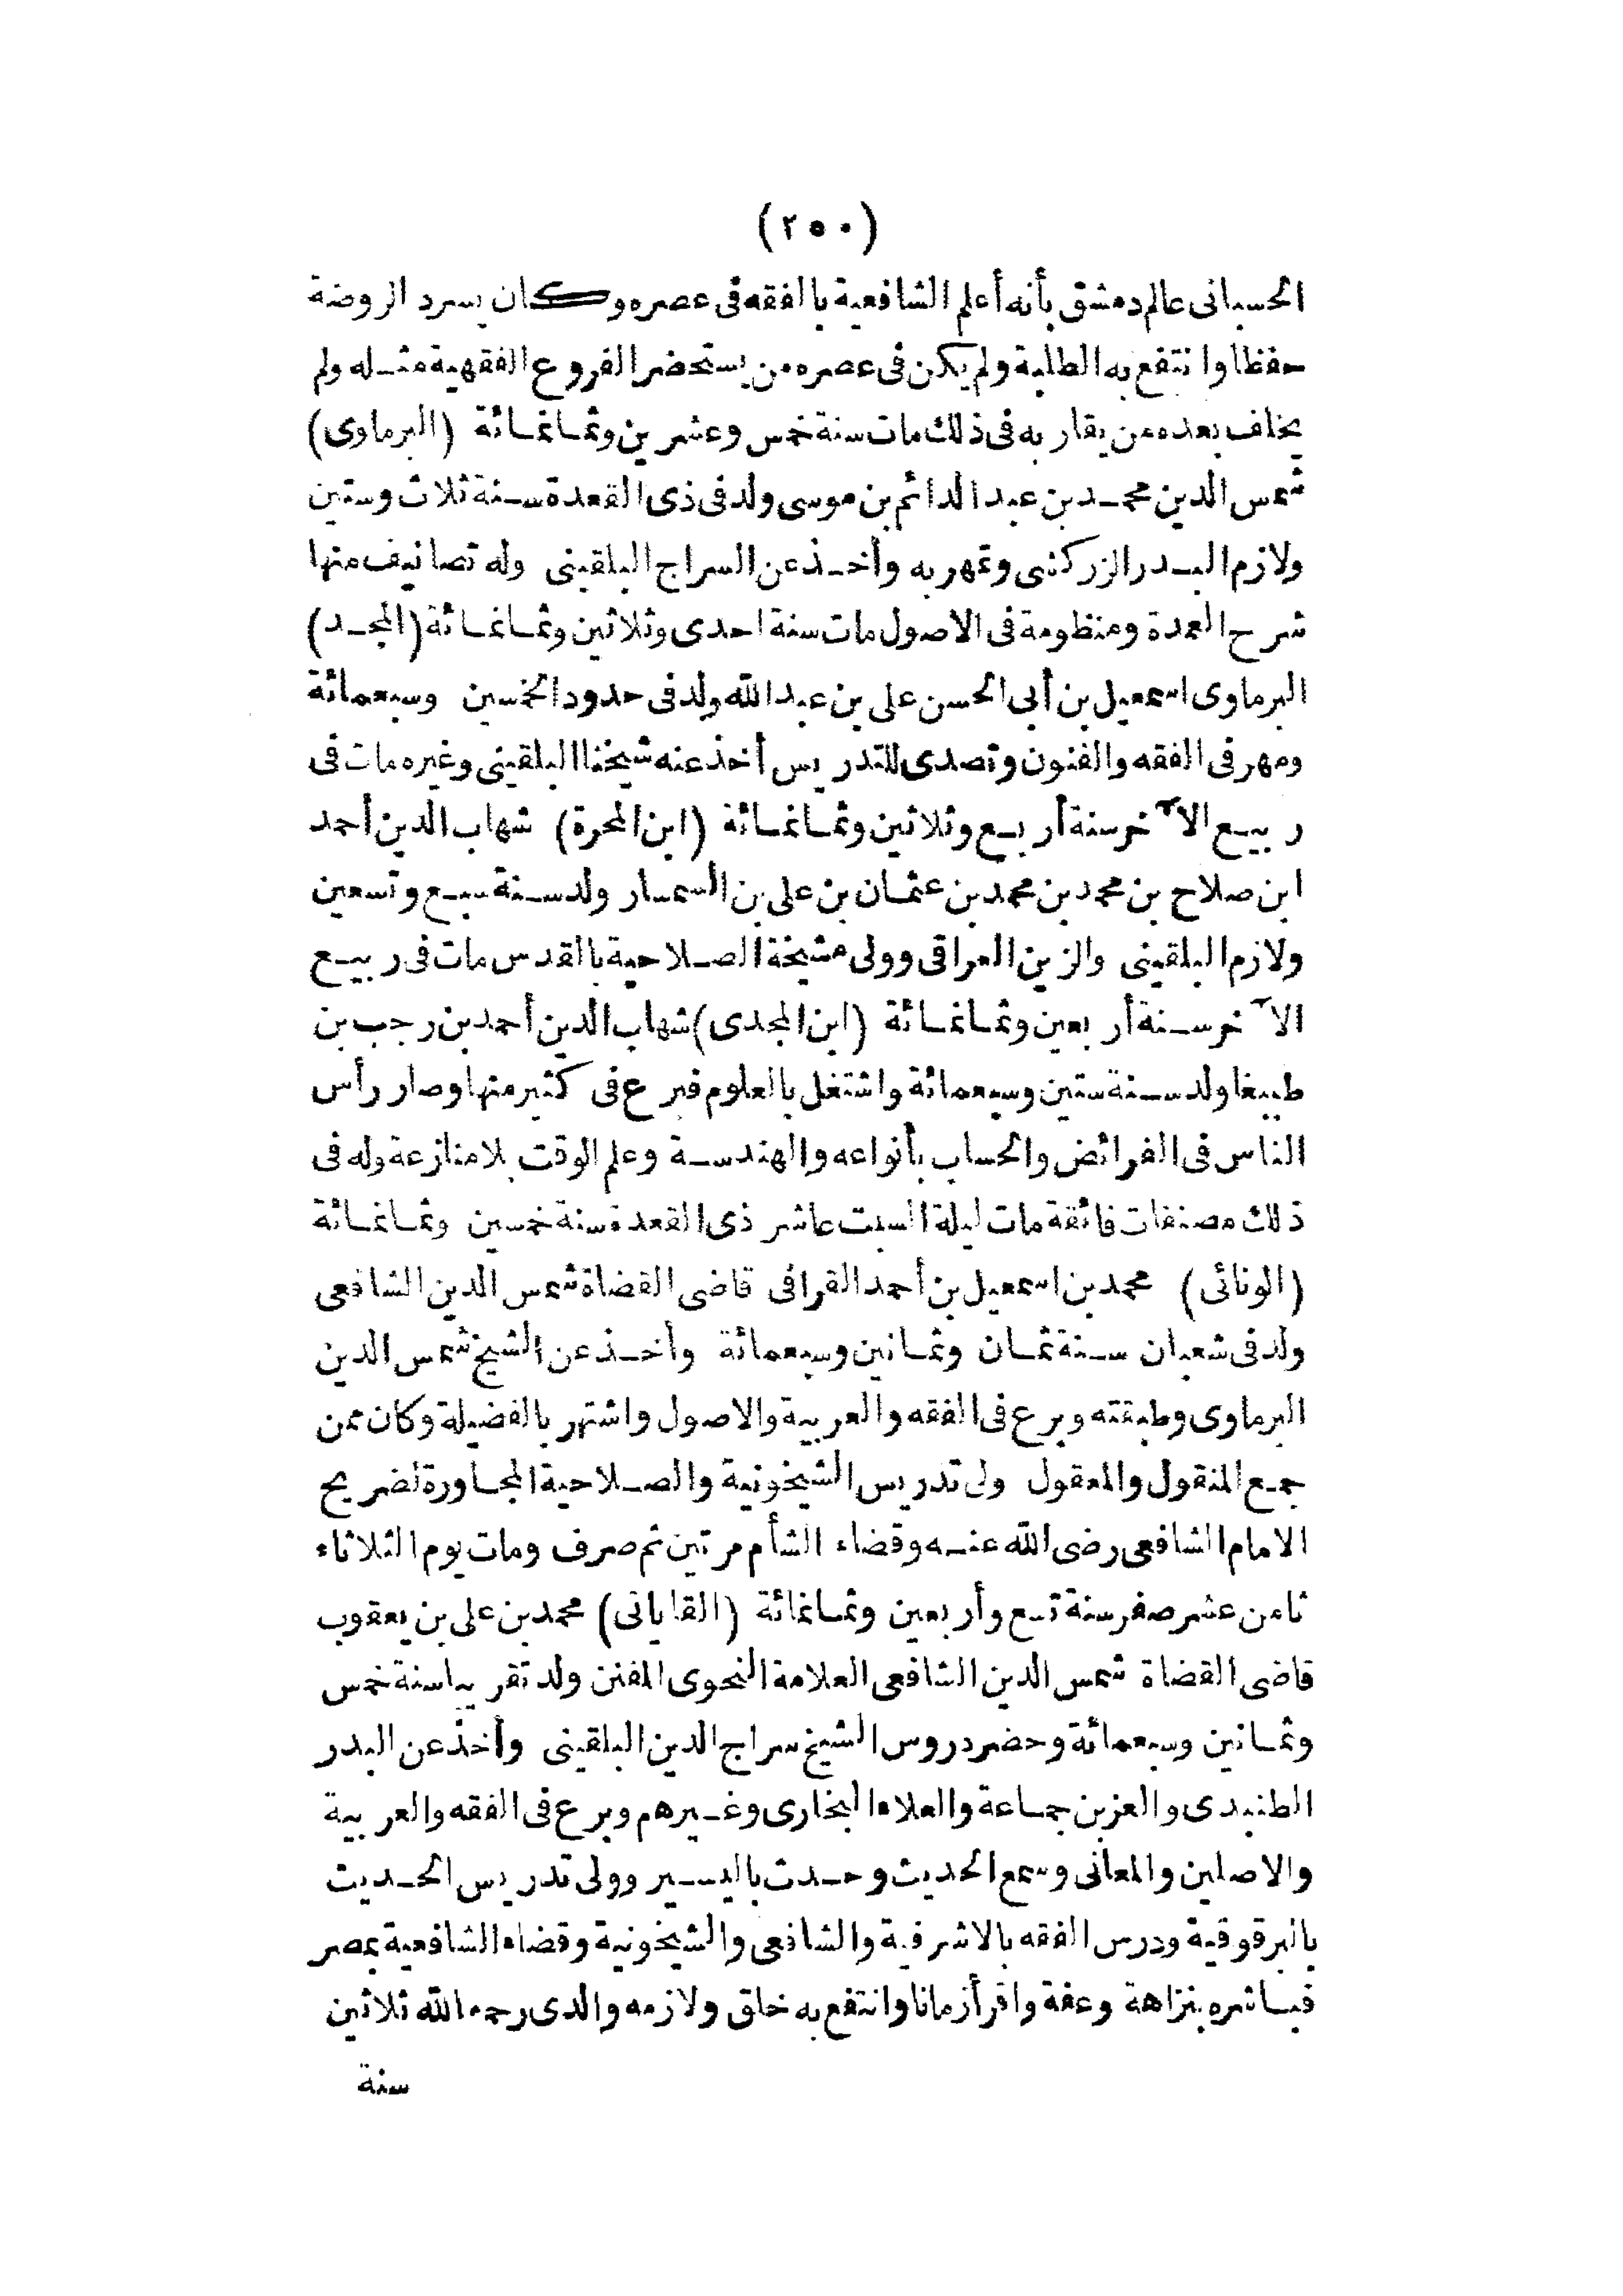 (٢٥٠)
الحسبانى عالم دمشق بأنه أعلم الشافعية بالفقه فى عصره وكان يسرد الروضة
حفظا وانتفع به الطلبة ولم يكن فى عصره من يستحضر الفروع الفقهية مثله ولم
يخلف بعده من يقاربه فى ذلك مات سنة خمس وعشرين وثمانمائة (البرماوى)
شمس الدين محمد بن عبد الدائم بن موسى ولد فى ذى القعدة سنة ثلاث وستين
ولازم البدر الزركشى وتمهر به وأخذ عن السراج البلقينى وله تصانيف منها
شرح العمدة ومنظومة فى الاصول مات سنة احدى وثلاثين وثمانمائة (المجد)
البرماوى اسمعيل بن أبى الحسن على بن عبد الله ولد فى حدود الخمسين وسبعمائة
ومهر فى الفقه والفنون وتصدى للتدريس أخذ عنه شيخنا البلقينى وغيره مات فى
ربيع الآخر سنة أربع وثلاثين وثمانمائة (ابن المحرة) شهاب الدين أحمد
ابن صلاح بن محمد بن محمد بن عثمان بن على بن السمسار ولد سنة سبع وتسعين
ولازم البلقينى والزين العراقى وولى مشيخة الصلاحية بالقدس مات فى ربيع
الآخر سنة أربعين وثمانمائة (ابن المجدى) شهاب الدين أحمد بن رجب بن
طيبغا ولد سنة ستين وسبعمائة واشتغل بالعلوم فبرع فى كثير منها وصار رأس
الناس فى الفرائض والحساب بأنواعه والهندسة وعلم الوقت بلا منازعة وله فى
ذلك مصنفات فائقة مات ليلة السبت عاشر ذى القعدة سنة خمسين وثمانمائة
(الونائى) محمد بن اسمعيل بن أحمد القرافى قاضى القضاة شمس الدين الشافعى
ولد فى شعبان سنة ثمان وثمانين وسبعمائة وأخذ عن الشيخ شمس الدين
البرماوى وطبقته وبرع فى الفقه والعربية والاصول واشتهر بالفضيلة وكان ممن
جمع المنقول والمعقول ولى تدريس الشيخونية والصلاحية المجاورة لضريح
الامام الشافعى رضى الله عنه وقضاء الشأم مرتين ثم صرف ومات يوم الثلاثاء
ثامن عشر صفر سنة تسع وأربعين وثمانمائة (القاياتى) محمد بن على بن يعقوب
قاضى القضاة شمس الدين الشافعى العلامة النحوى المفنن ولد تقريبا سنة خمس
وثمانين وسبعمائة وحضر دروس الشيخ سراج الدين البلقينى وأخذ عن البدر
الطنبدى والعز بن جماعة والعلاء البخارى وغيرهم وبرع فى الفقه والعربية
والاصلين والمعانى وسمع الحديث وحدث باليسير وولى تدريس الحديث
بالبرقوقية ودرس الفقه بالاشرفية والشافعى والشيخونية وقضاء الشافعية بمصر
فباشره بنزاهة وعفة واقرأ زمانا وانتفع به خلق ولازمه والدى رحمه الله ثلاثين
سنة